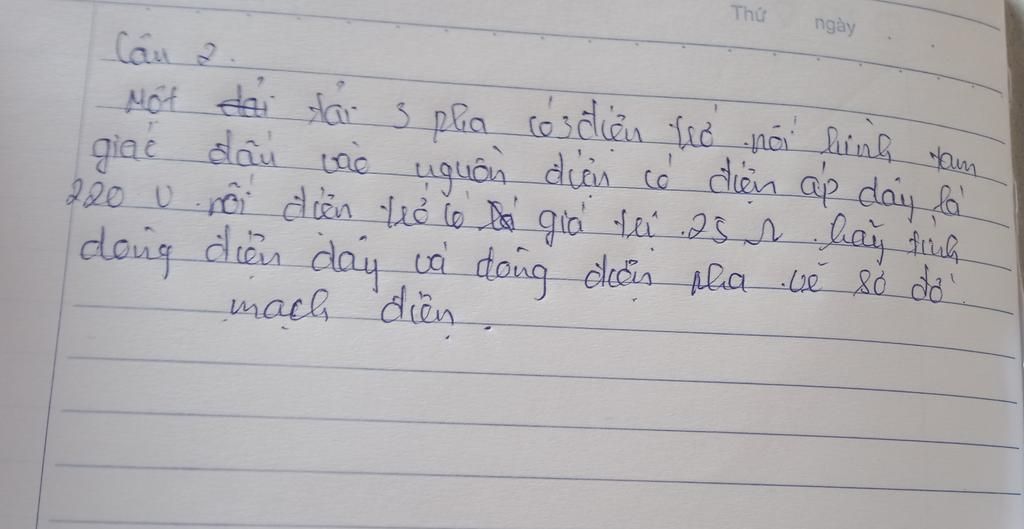 Thứ ngày . .
Câu 2.
Một tải 3 pha có 3 điện trở nối hình tam
giác đấu vào nguồn điện có điện áp dây là
220 V. nối điện trở có giá trị 25 Ω. hãy tính
dòng điện dây và dòng điện pha vẽ sơ đồ
mạch điện.